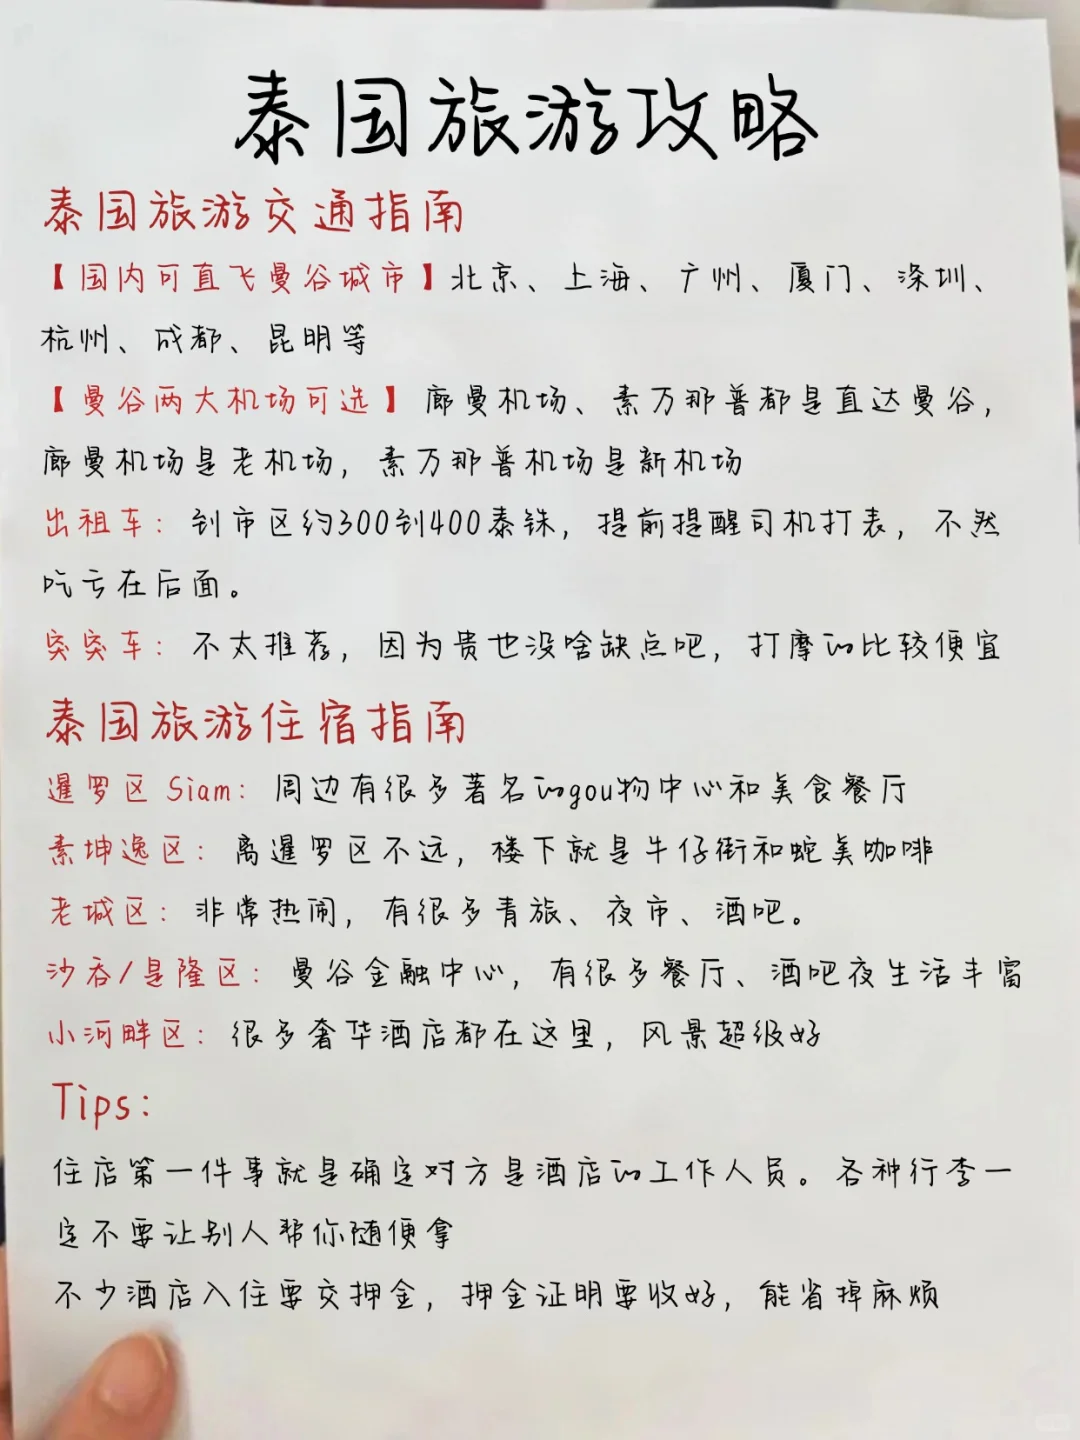 泰国旅游攻略
泰国旅游交通指南
【国内可直飞曼谷城市】北京、上海、广州、厦门、深圳、
杭州、成都、昆明等
【曼谷两大机场可选】廊曼机场、素万那普都是直达曼谷，
廊曼机场是老机场，素万那普机场是新机场
出租车：到市区约300到400泰铢，提前提醒司机打表，不然
吃亏在后面。
突突车：不太推荐，因为贵也没啥缺点吧，打摩的比较便宜
泰国旅游住宿指南
暹罗区 Siam：周边有很多著名的gou物中心和美食餐厅
素坤逸区：离暹罗区不远，楼下就是牛仔街和蛇美咖啡
老城区：非常热闹，有很多青旅、夜市、酒吧。
沙吞/是隆区：曼谷金融中心，有很多餐厅、酒吧夜生活丰富
小河畔区：很多奢华酒店都在这里，风景超级好
Tips：
住店第一件事就是确定对方是酒店的工作人员。各种行李一
定不要让别人帮你随便拿
不少酒店入住要交押金，押金证明要收好，能省掉麻烦